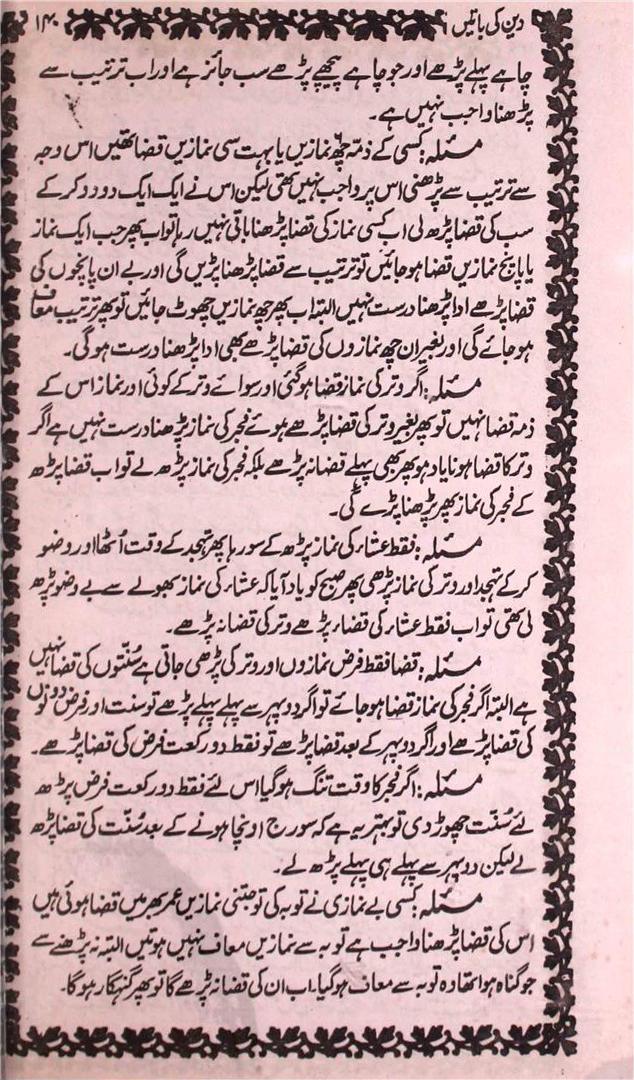 دین کی باتیں ۱۴۰
چاہے پہلے پڑھے اور جو چاہے پیچھے پڑھے سب جائز ہے اور اب ترتیب سے
پڑھنا واجب نہیں ہے۔
مسئلہ: کسی کے ذمہ چھ نمازیں یا بہت سی نمازیں قضا تھیں اس وجہ
سے ترتیب سے پڑھنی اس پر واجب نہیں تھی لیکن اس نے ایک ایک دو دو کر کے
سب کی قضا پڑھ لی اب کسی نماز کی قضا پڑھنا باقی نہیں رہا تو اب پھر جب ایک نماز
یا پانچ نمازیں قضا ہو جائیں تو ترتیب سے قضا پڑھنا پڑیں گی اور بے ان پانچوں کی
قضا پڑھے ادا پڑھنا درست نہیں البتہ اب پھر چھ نمازیں چھوٹ جائیں تو پھر ترتیب معاف
ہو جائے گی اور بغیر ان چھ نمازوں کی قضا پڑھے بھی ادا پڑھنا درست ہوگی۔
مسئلہ: اگر وتر کی نماز قضا ہوگئی اور سوائے وتر کے کوئی اور نماز اس کے
ذمہ قضا نہیں تو پھر بغیر وتر کی قضا پڑھے ہوئے فجر کی نماز پڑھنا درست نہیں ہے اگر
وتر کا قضا ہونا یاد ہو پھر بھی پہلے قضا نہ پڑھے بلکہ فجر کی نماز پڑھ لے تو اب قضا پڑھ
کے فجر کی نماز پھر پڑھنا پڑے گی۔
مسئلہ: فقط عشاء کی نماز پڑھ کے سو رہا پھر تہجد کے وقت اُٹھا اور وضو
کر کے تہجد اور وتر کی نماز پڑھی پھر صبح کو یاد آیا کہ عشاء کی نماز بھولے سے بے وضو پڑھ
لی تھی تو اب فقط عشاء کی قضاء پڑھے وتر کی قضا نہ پڑھے۔
مسئلہ: قضا فقط فرض نمازوں اور وتر کی پڑھی جاتی ہے سُنّتوں کی قضا نہیں
ہے البتہ اگر فجر کی نماز قضا ہو جائے تو اگر دوپہر سے پہلے پہلے پڑھے تو سنت اور فرض دونوں
کی قضا پڑھے اور اگر دوپہر کے بعد قضا پڑھے تو فقط دو رکعت فرض کی قضا پڑھے۔
مسئلہ: اگر فجر کا وقت تنگ ہوگیا اس لئے فقط دو رکعت فرض پڑھ
لئے سُنّت چھوڑ دی تو بہتر یہ ہے کہ سورج اونچا ہونے کے بعد سُنّت کی قضا پڑھ
لے لیکن دوپہر سے پہلے ہی پہلے پڑھ لے۔
مسئلہ: کسی بے نمازی نے توبہ کی تو جتنی نمازیں عمر بھر میں قضا ہوئی ہیں
اس کی قضا پڑھنا واجب ہے توبہ سے نمازیں معاف نہیں ہوتیں البتہ نہ پڑھنے سے
جو گناہ ہوا تھا وہ توبہ سے معاف ہوگیا۔ اب ان کی قضا نہ پڑھے گا تو پھر گنہگار ہوگا۔